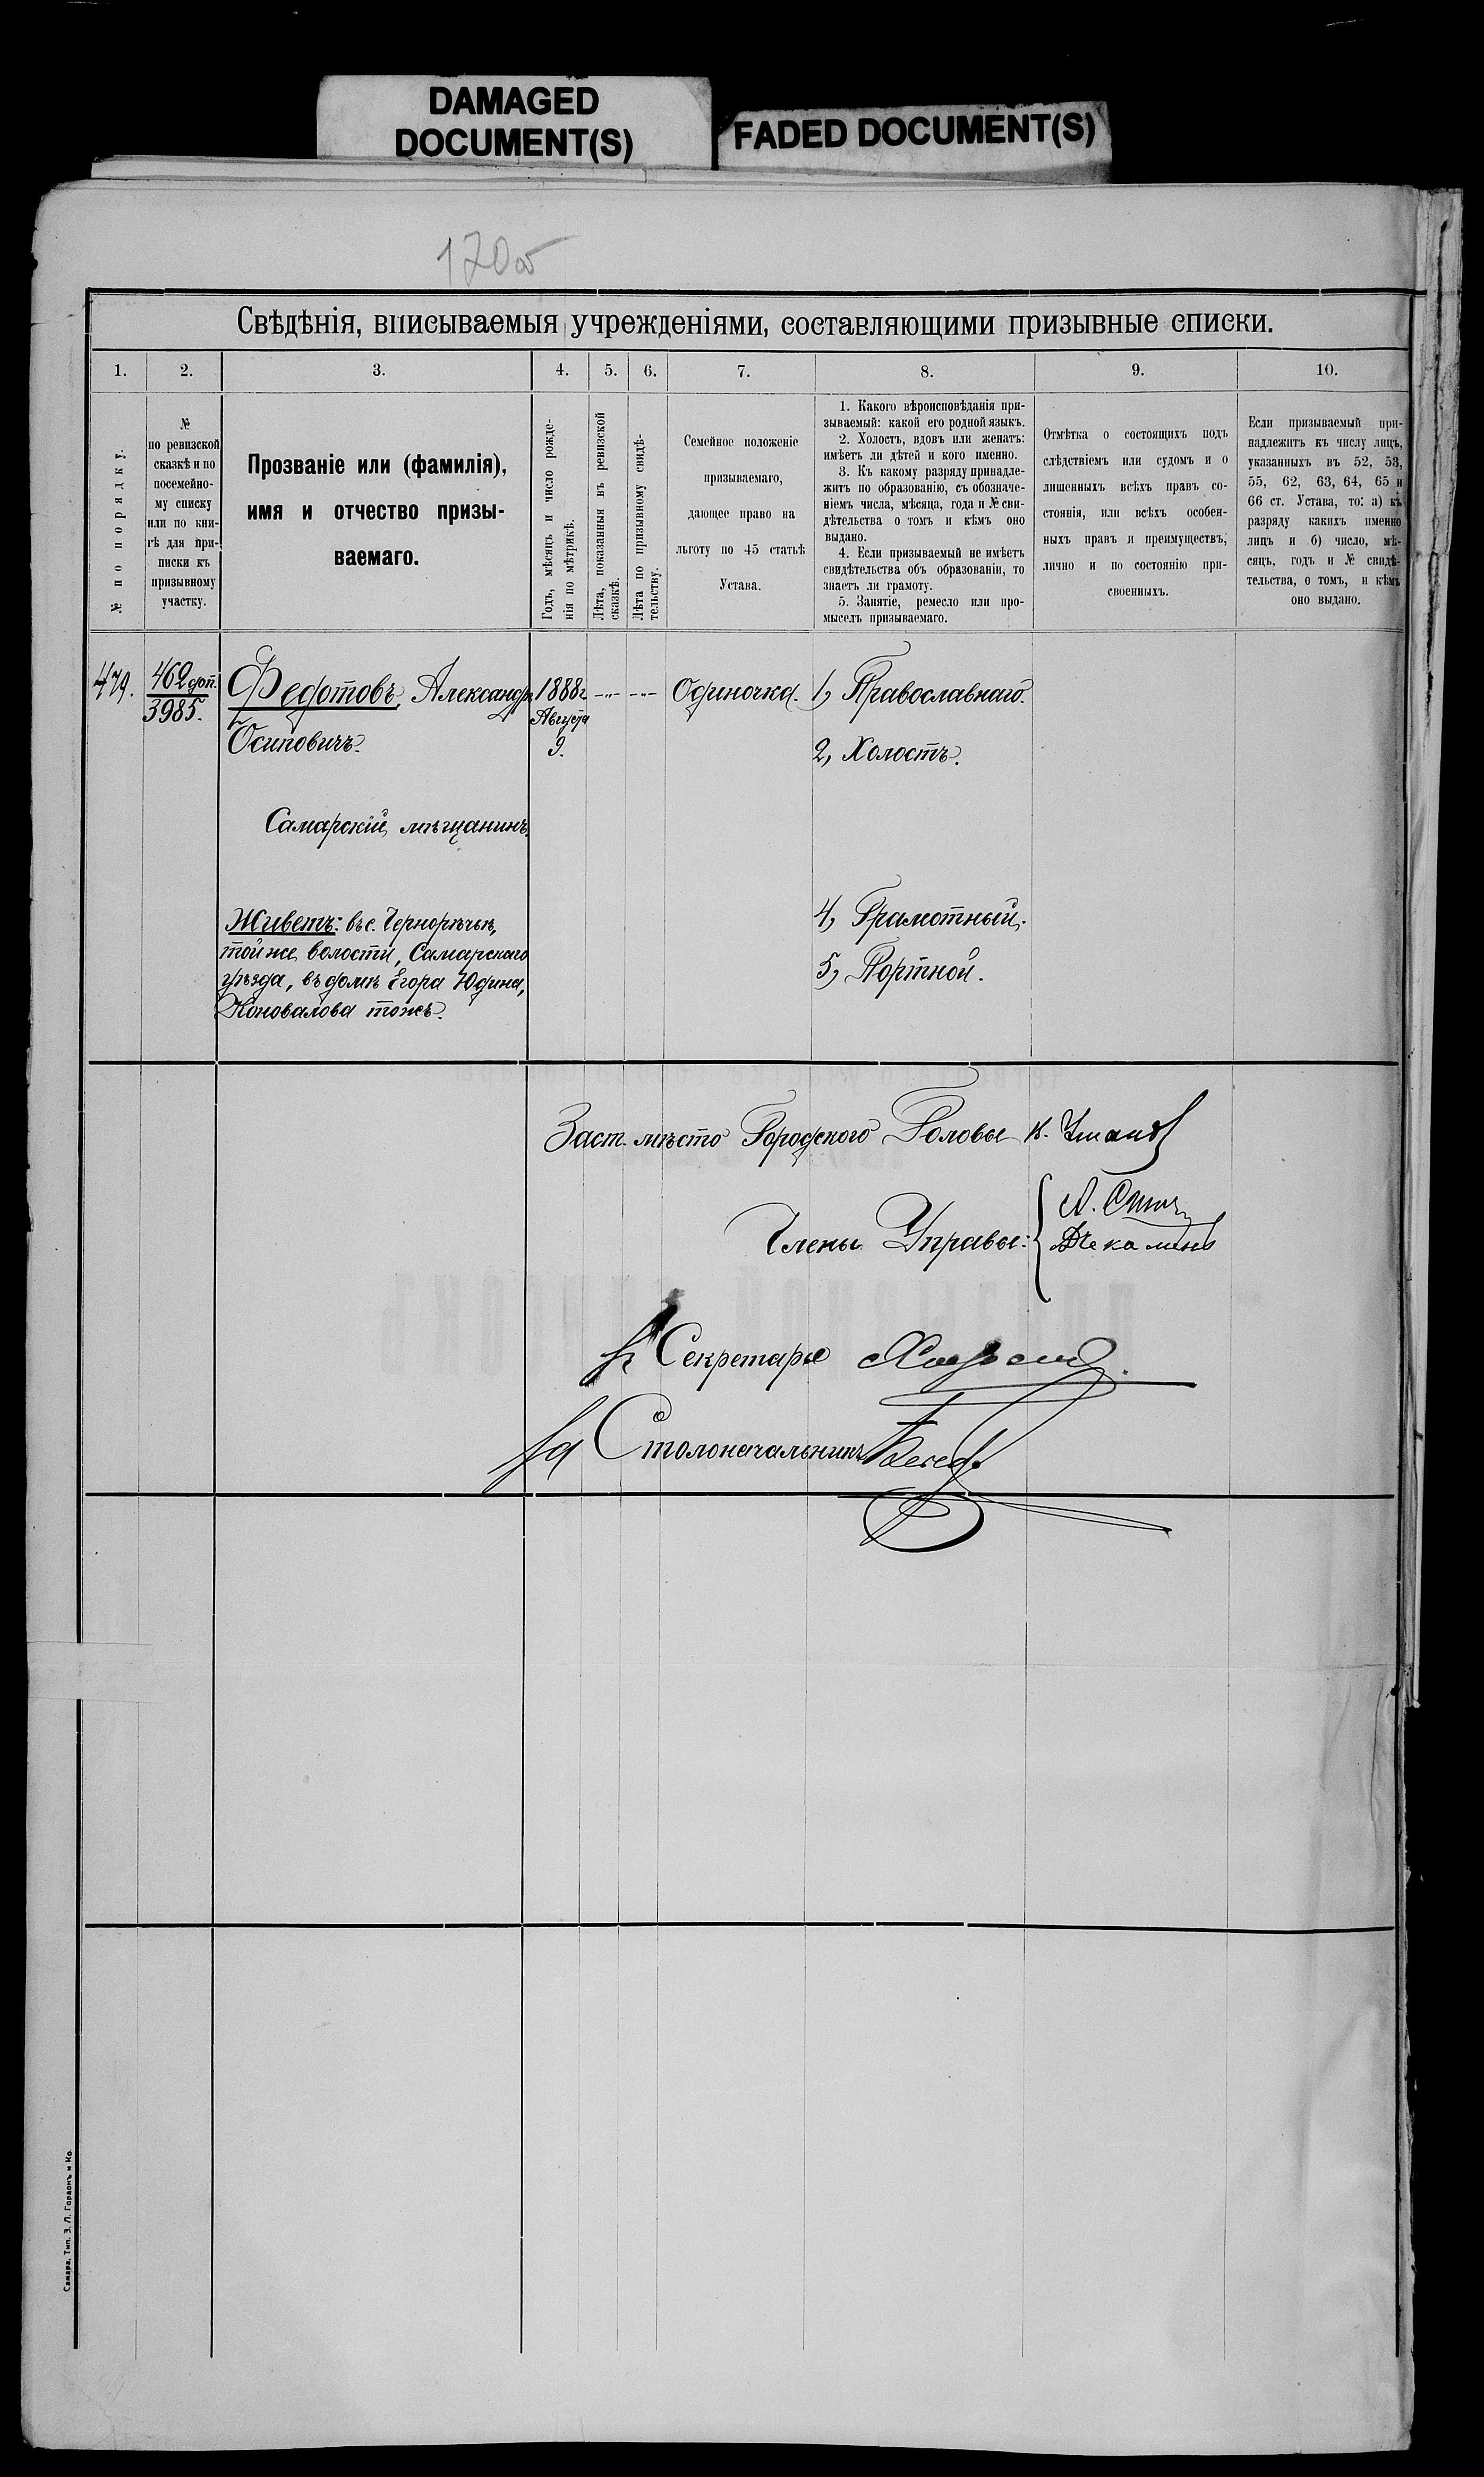 DAMAGED
DOCUMENT(S)
FADED DOCUMENT(S)
170об
Свѣдѣнія, вписываемыя учрежденіями, составляющими призывные списки.
1.
2.
3.
4.
5.
6.
7.
8.
9.
10.
№ по порядку.
№
по ревизской
сказкѣ и по
посемейно-
му списку
или по кни-
гѣ для при-
писки къ
призывному
участку.
Прозваніе или (фамилія),
имя и отчество призы-
ваемаго.
Годъ, мѣсяцъ и число рожде-
нія по метрикѣ.
Лѣта, показанныя въ ревизской
сказкѣ.
Лѣта по призывному свидѣ-
тельству.
Семейное положеніе
призываемаго,
дающее право на
льготу по 45 статьѣ
Устава.
1. Какого вѣроисповѣданія при-
зываемый: какой его родной языкъ.
2. Холостъ, вдовъ или женатъ:
имѣетъ ли дѣтей и кого именно.
3. Къ какому разряду принадле-
житъ по образованію, съ обозначе-
ніемъ числа, мѣсяца, года и № сви-
дѣтельства о томъ и кѣмъ оно
выдано.
4. Если призываемый не имѣетъ
свидѣтельства объ образованіи, то
знаетъ ли грамоту.
5. Занятіе, ремесло или про-
мыселъ призываемаго.
Отмѣтка о состоящихъ подъ
слѣдствіемъ или судомъ и о
лишенныхъ всѣхъ правъ со-
стоянія, или всѣхъ особен-
ныхъ правъ и преимуществъ,
лично и по состоянію при-
своенныхъ.
Если призываемый при-
надлежитъ къ числу лицъ,
указанныхъ въ 52, 53,
55, 62, 63, 64, 65 и
66 ст. Устава, то: а) къ
разряду какихъ именно
лицъ и б) число, мѣ-
сяцъ, годъ и № свидѣ-
тельства, о томъ, и кѣмъ
оно выдано.
479.
462 доп.
3985.
Федотовъ, Александръ
Осиповичъ.
Самарскій мѣщанинъ.
Живетъ: въ с. Чернорѣчьѣ,
той же волости, Самарскаго
уѣзда, въ домѣ Егора Юдина,
Коновалова тожъ.
1888 г.
Августа
9.
Одиночка.
1, Православнаго.
2, Холостъ.
4, Грамотный.
5, Портной.
Заст. мѣсто Городского Головы К.
Члены Управы:
А.
Секретарь
За Столоначальника
Самара, Тип. З. Л. Гордонъ и Ко.